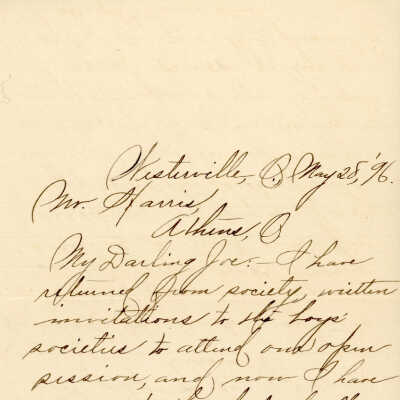 Westerville, O. May 28, '96.
Mr. Harris,
Athens, O
My Darling Joe:– I have
returned from society, written
invitations to the boys'
societies to attend our open
session, and now I have